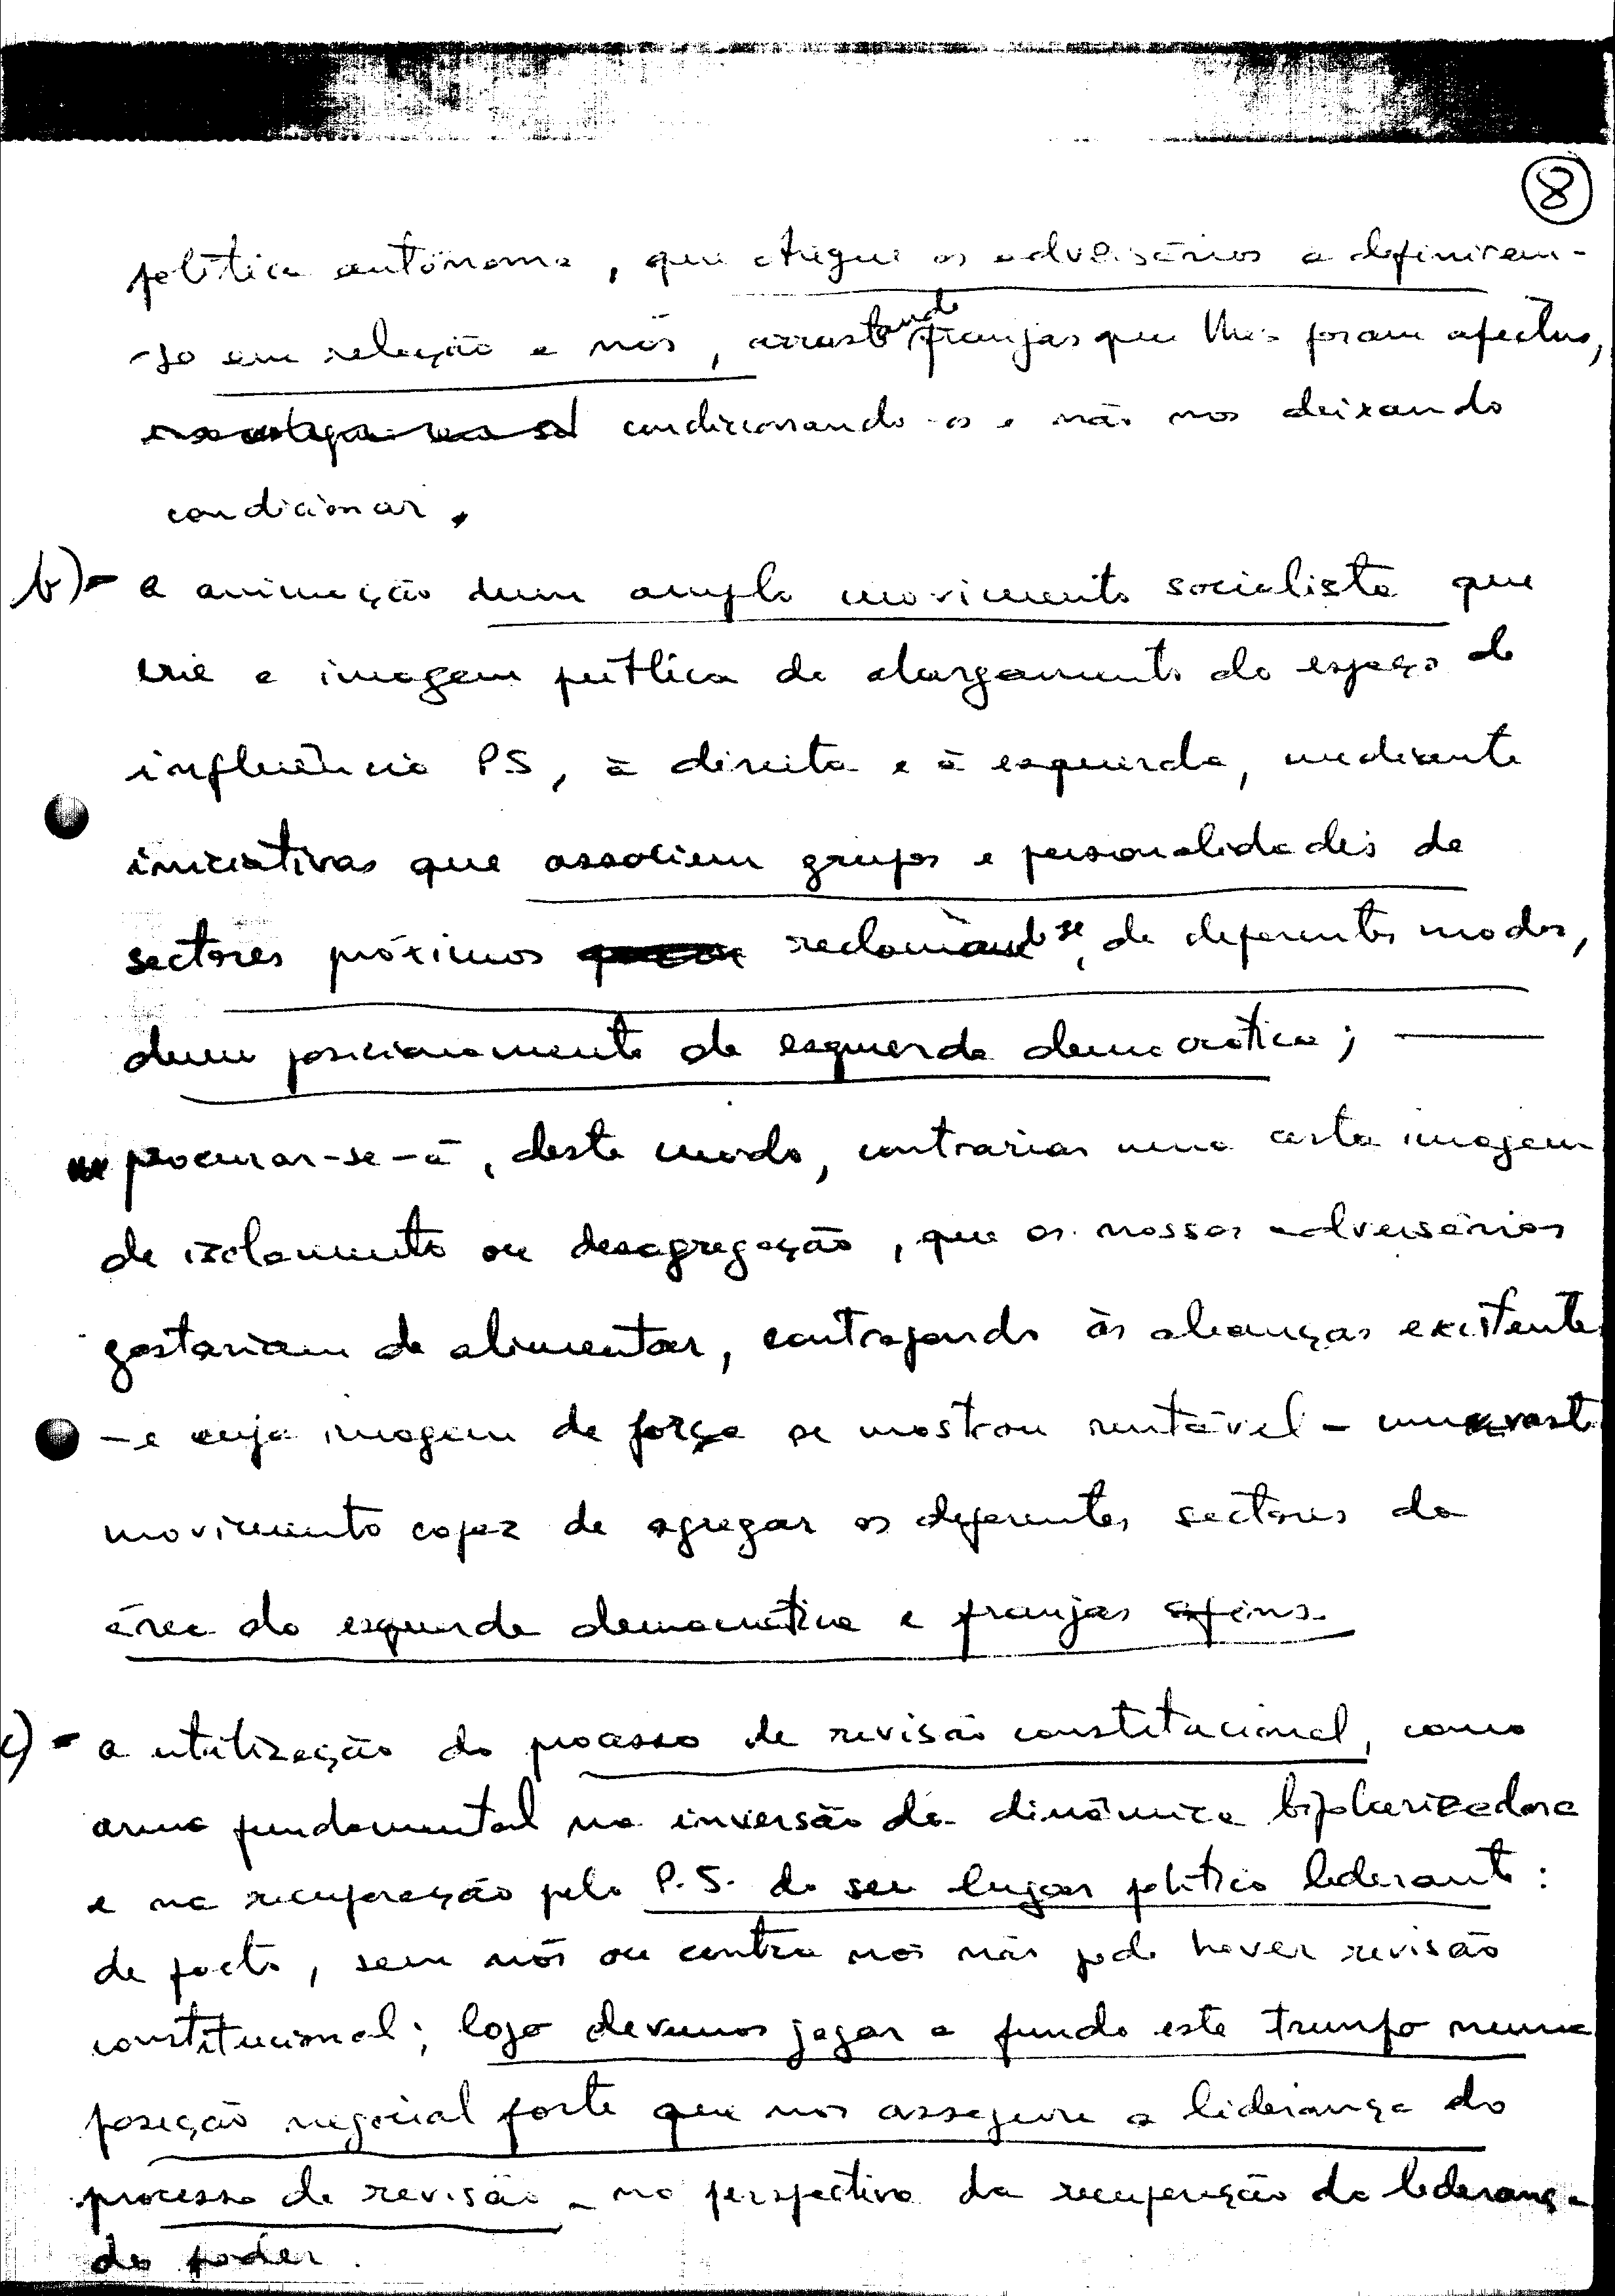 8
política autónoma, que obrigue os adversários a definirem-
-se em relação a nós, arrastando franjas que lhes foram afectas,
condicionando-os e não nos deixando
condicionar.
b) - a animação dum amplo movimento socialista que
crie a imagem pública de alargamento do espaço de
influência PS, à direita e à esquerda, mediante
iniciativas que associem grupos e personalidades de
sectores próximos reclamando-se, de diferentes modos,
dum posicionamento de esquerda democrática;
procurar-se-á, deste modo, contrariar uma certa imagem
de isolamento ou desagregação, que os nossos adversários
gostariam de alimentar, contrapondo às alianças existentes
- e cuja imagem de força se mostrou rentável - um vasto
movimento capaz de agregar os diferentes sectores da
área da esquerda democrática e franjas afins.
c) - a utilização do processo de revisão constitucional, como
arma fundamental na inversão da dinâmica bipolarizadora
e na recuperação pelo P.S. do seu lugar político liderante:
de facto, sem nós ou contra nós não pode haver revisão
constitucional; logo devemos jogar a fundo este trunfo numa
posição negocial forte que nos assegure a liderança do
processo de revisão - na perspectiva da recuperação da liderança
do poder.